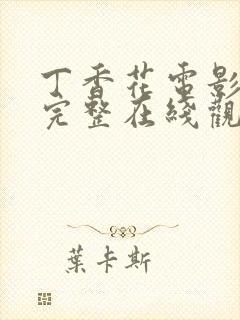 丁香花電影
完整在綫觀
葉卡斯